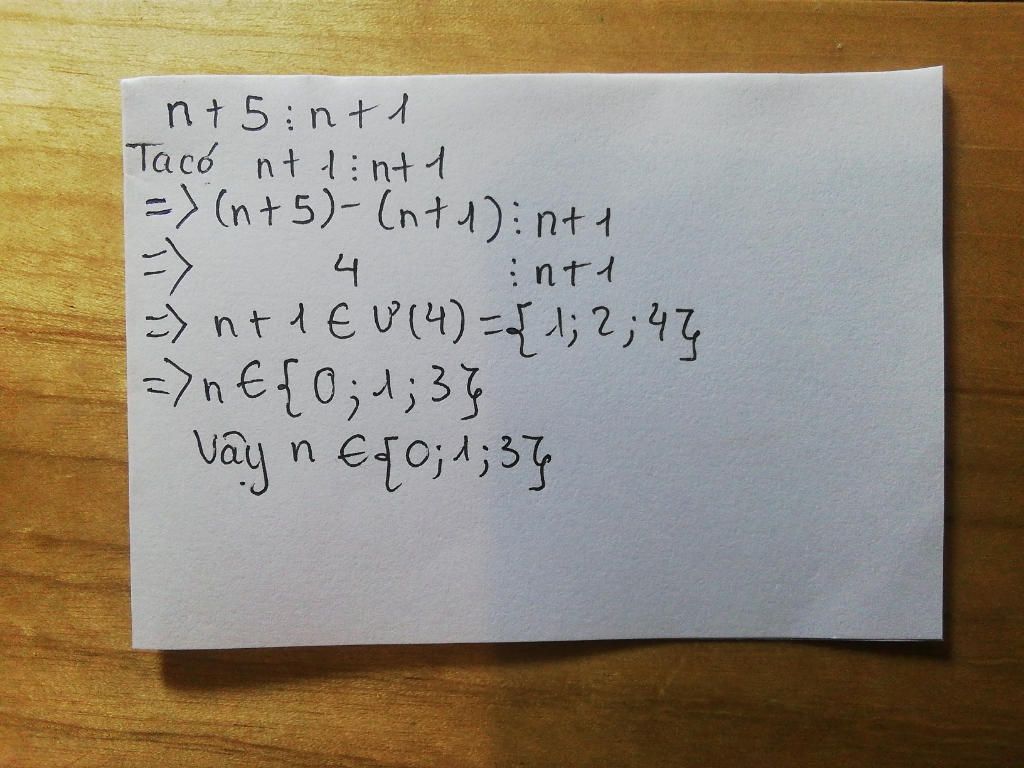 n + 5 ⋮ n + 1
Ta có n + 1 ⋮ n + 1
=> (n + 5) - (n + 1) ⋮ n + 1
=> 4 ⋮ n + 1
=> n + 1 ∈ Ư(4) = {1; 2; 4}
=> n ∈ {0; 1; 3}
Vậy n ∈ {0; 1; 3}